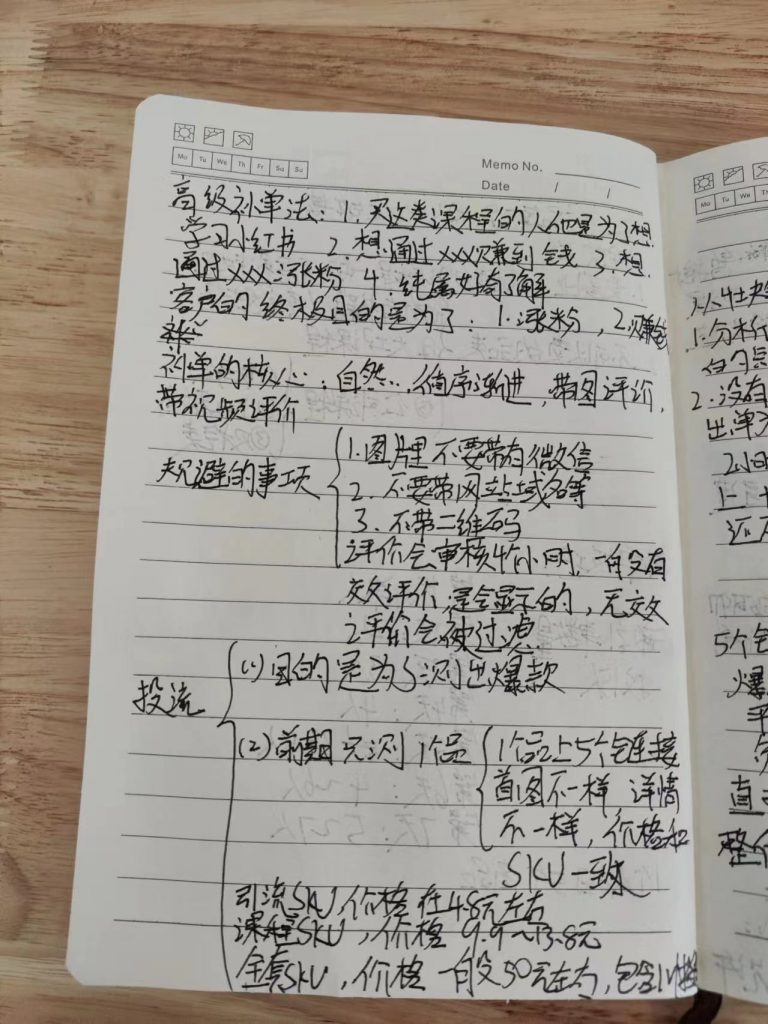 Mo Tu We Th Fr Sa Su
Memo No.
Date / /
高级补单法：1. 买这类课程的人他是为了想
学习小红书 2. 想通过xxx赚到钱 3. 想
通过xxx涨粉 4. 纯属好奇了解
客户的终极目的是为了：1. 涨粉，2. 赚钱
补单的核心：自然，循序渐进，带图评价，
带视频评价
规避的事项
1. 图片里不要带有微信
2. 不要带网站域名等
3. 不带二维码
评价会审核4个小时，一般没有
效评价，是会显示的，无效
评价会被过滤
投流
(1) 目的是为了测出爆款
(2) 前期只测1个品
1个品上5个链接
首图不一样 详情
不一样，价格和
SKU一致
引流SKU，价格在4.8元左右
课程SKU，价格 9.9~13.8元
全套SKU，价格一般50元左右，包含
Mo Tu We Th
1. 分析
2. 没有
出单
2小时
5个
爆
平
直
整个